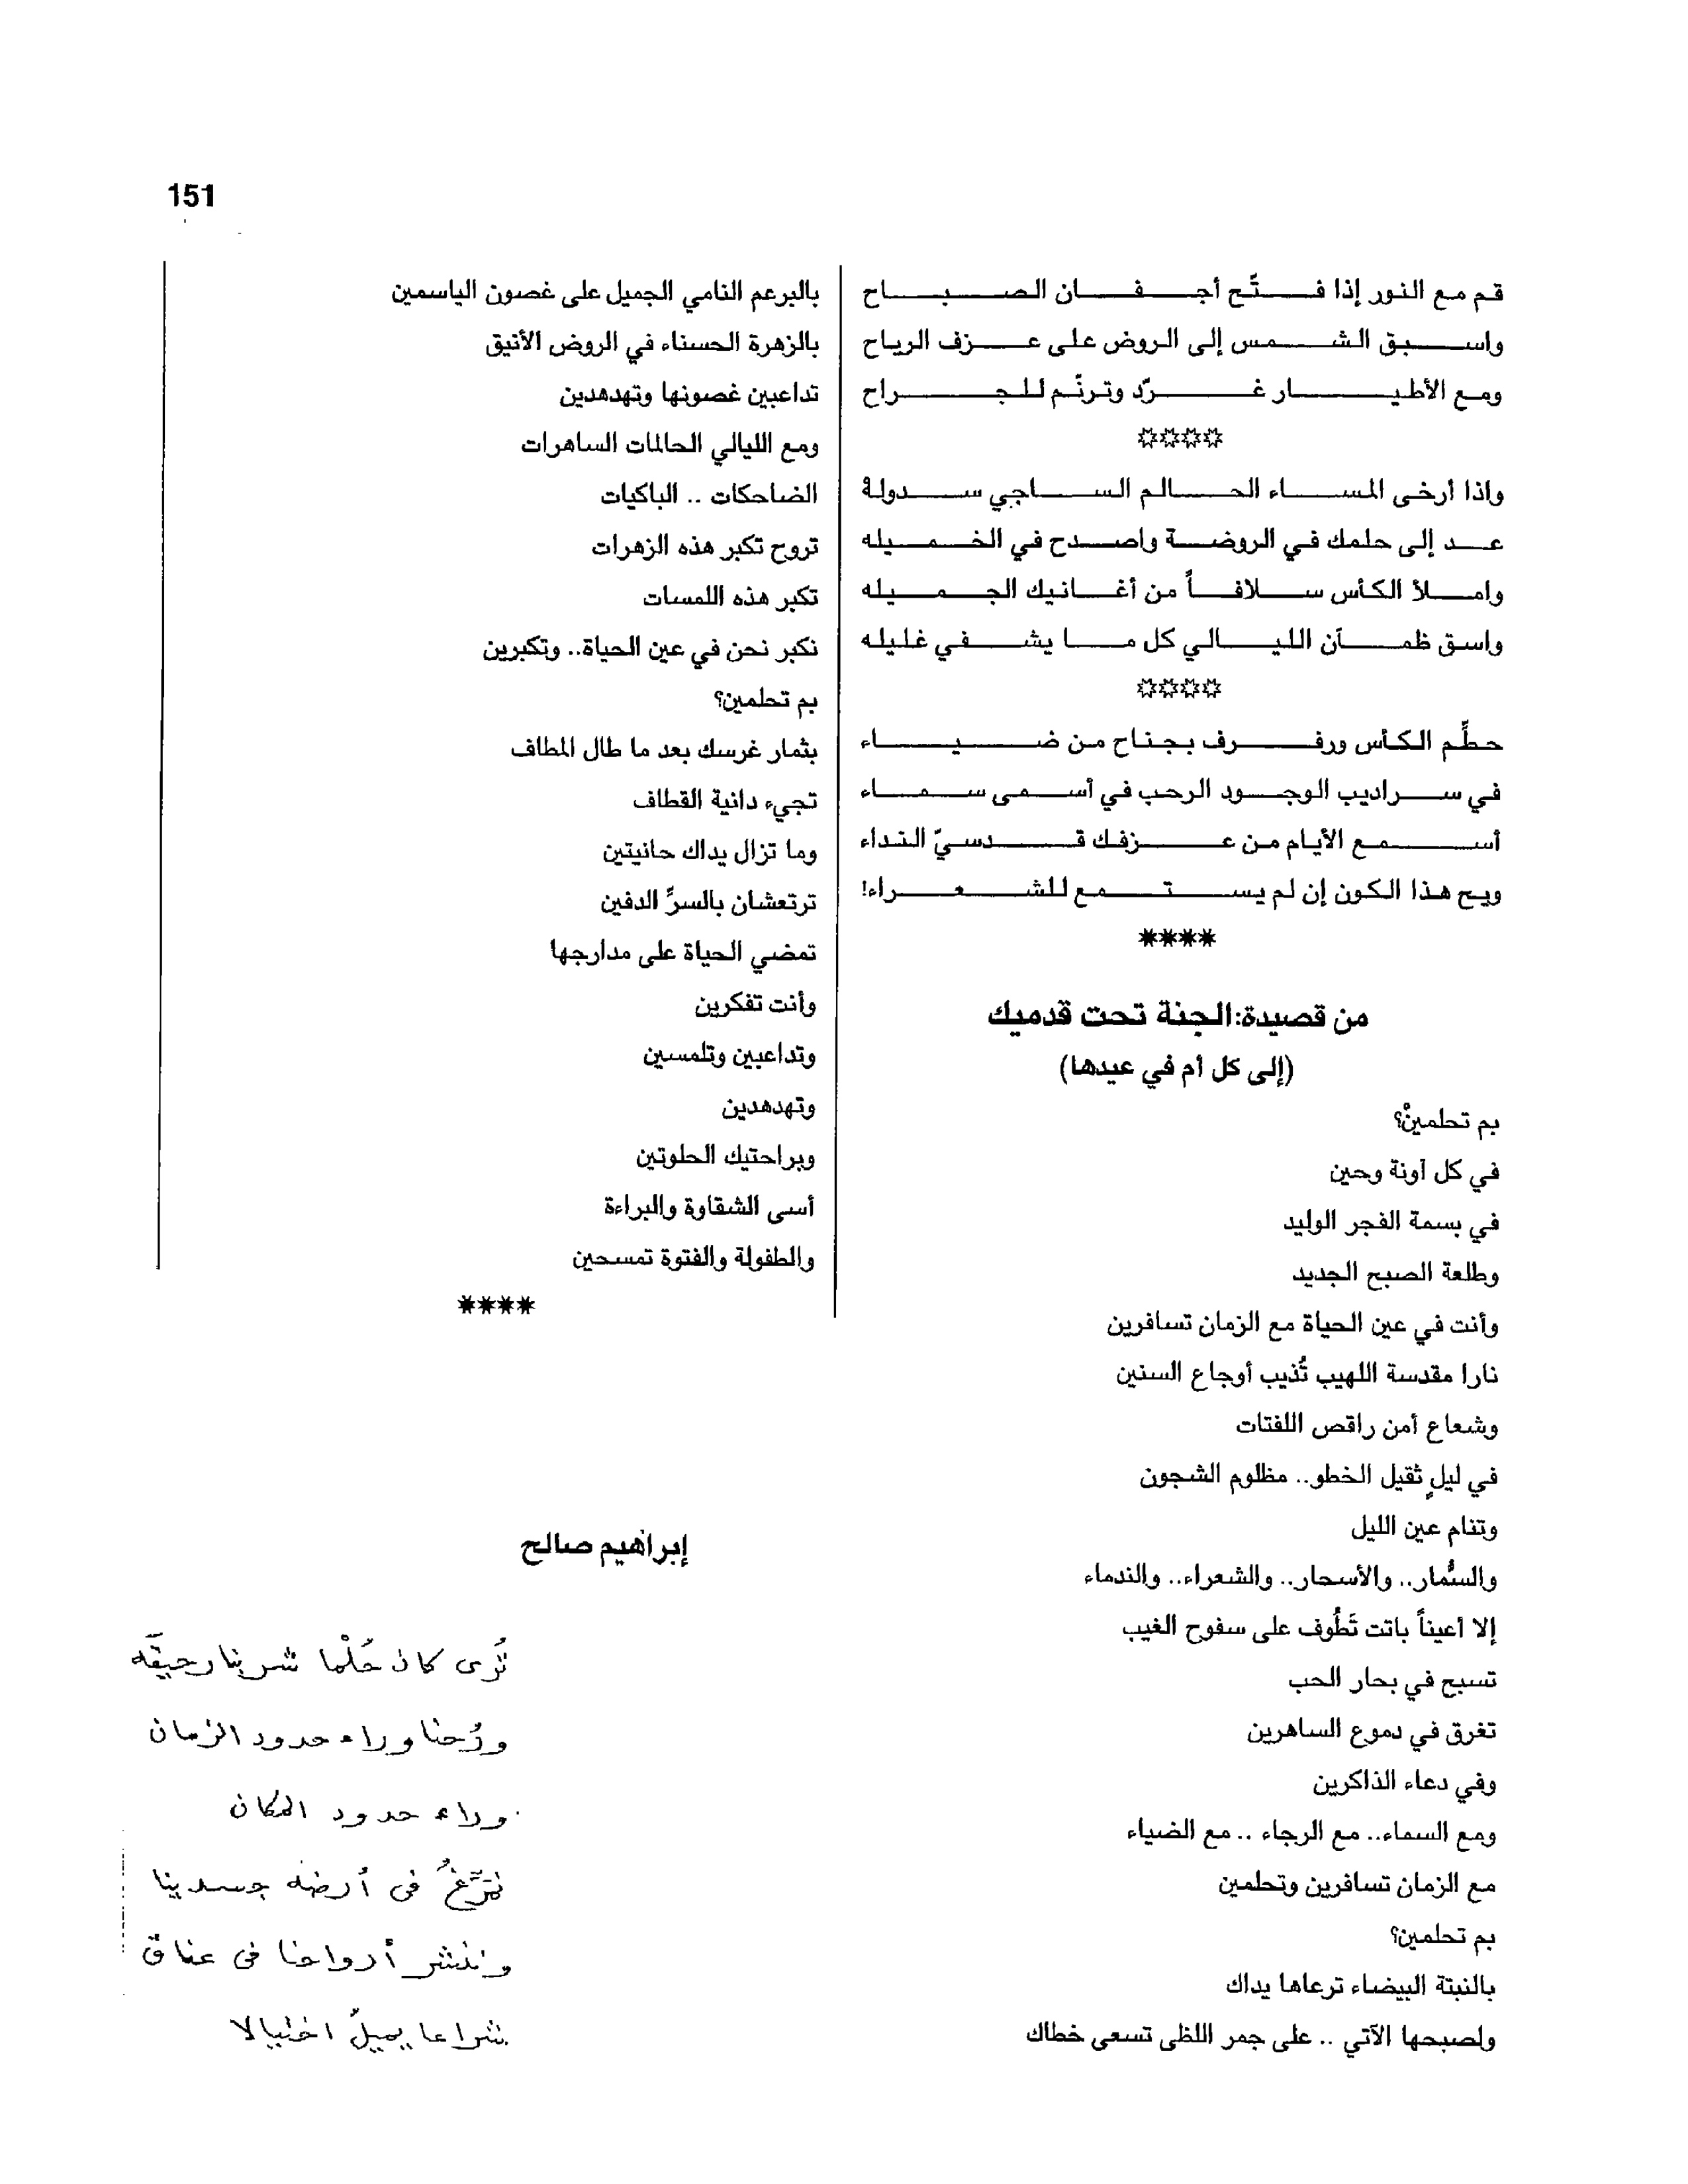 151
قم مع النور إذا فتّح أجفان الصباح
واسبق الشمس إلى الروض على عزف الرياح
ومع الأطيار غرّد وترنّم للجراح
✡✡✡✡
وإذا أرخى المساء الحالم الساجي سدولهْ
عد إلى حلمك في الروضة واصدح في الخميله
واملأ الكأس سلافاً من أغانيك الجميله
واسق ظمآن الليالي كل ما يشفي غليله
✡✡✡✡
حطِّم الكأس ورفرف بجناح من ضياء
في سراديب الوجود الرحب في أسمى سماء
أسمع الأيام من عزفك قدسيّ النداء
ويح هذا الكون إن لم يستمع للشعراء!
****
من قصيدة:الجنة تحت قدميك
(إلى كل أم في عيدها)
بم تحلمينْ؟
في كل آونة وحين
في بسمة الفجر الوليد
وطلعة الصبح الجديد
وأنت في عين الحياة مع الزمان تسافرين
نارا مقدسة اللهيب تُذيب أوجاع السنين
وشعاع أمن راقص اللفتات
في ليلٍ ثقيل الخطو.. مظلوم الشجون
وتنام عين الليل
والسُّمار.. والأسحار.. والشعراء.. والندماء
إلا أعيناً باتت تَطُوف على سفوح الغيب
تسبح في بحار الحب
تغرق في دموع الساهرين
وفي دعاء الذاكرين
ومع السماء.. مع الرجاء .. مع الضياء
مع الزمان تسافرين وتحلمين
بم تحلمين؟
بالنبتة البيضاء ترعاها يداك
ولصبحها الآتي .. على جمر اللظى تسعى خطاك
بالبرعم النامي الجميل على غصون الياسمين
بالزهرة الحسناء في الروض الأنيق
تداعبين غصونها وتهدهدين
ومع الليالي الحالمات الساهرات
الضاحكات .. الباكيات
تروح تكبر هذه الزهرات
تكبر هذه اللمسات
نكبر نحن في عين الحياة.. وتكبرين
بم تحلمين؟
بثمار غرسك بعد ما طال المطاف
تجيء دانية القطاف
وما تزال يداك حانيتين
ترتعشان بالسرِّ الدفين
تمضي الحياة على مدارجها
وأنت تفكرين
وتداعبين وتلمسين
وتهدهدين
وبراحتيك الحلوتين
أسى الشقاوة والبراءة
والطفولة والفتوة تمسحين
****
إبراهيم صالح
تُرى كان حُلْما شربنا رحيقَه
ورُحنا وراء حدود الزمان
وراء حدود المكان
نمرّغُ فى أرضه جسدينا
وننشر أرواحنا فى عناق
شراعا يميلُ اختيالا